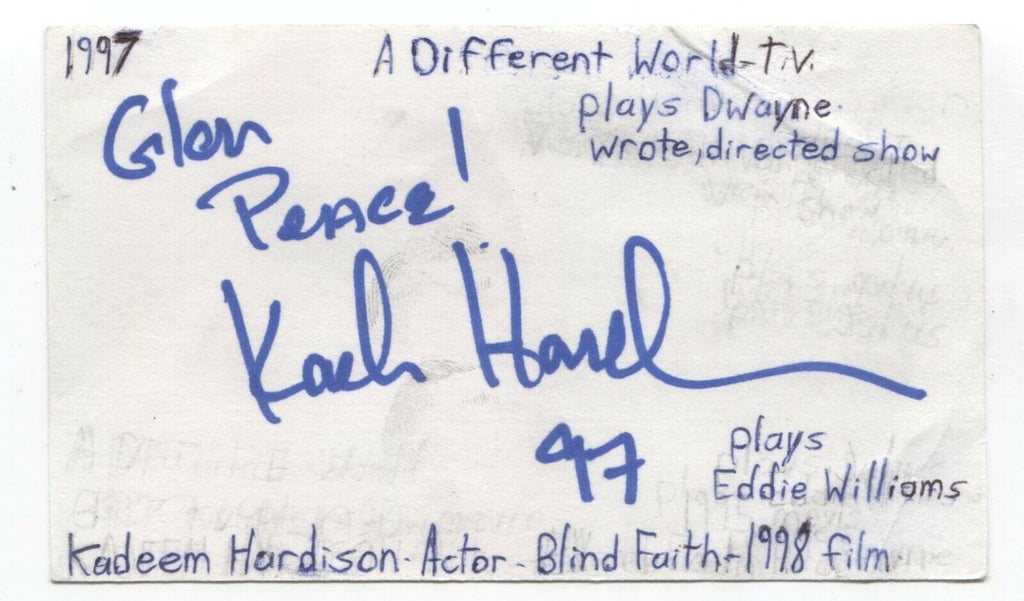 1997
A Different World-T.V.
plays Dwayne
wrote, directed show
Glen
Peace!
97
plays
Eddie Williams
Kadeem Hardison-Actor-Blind Faith-1998 film